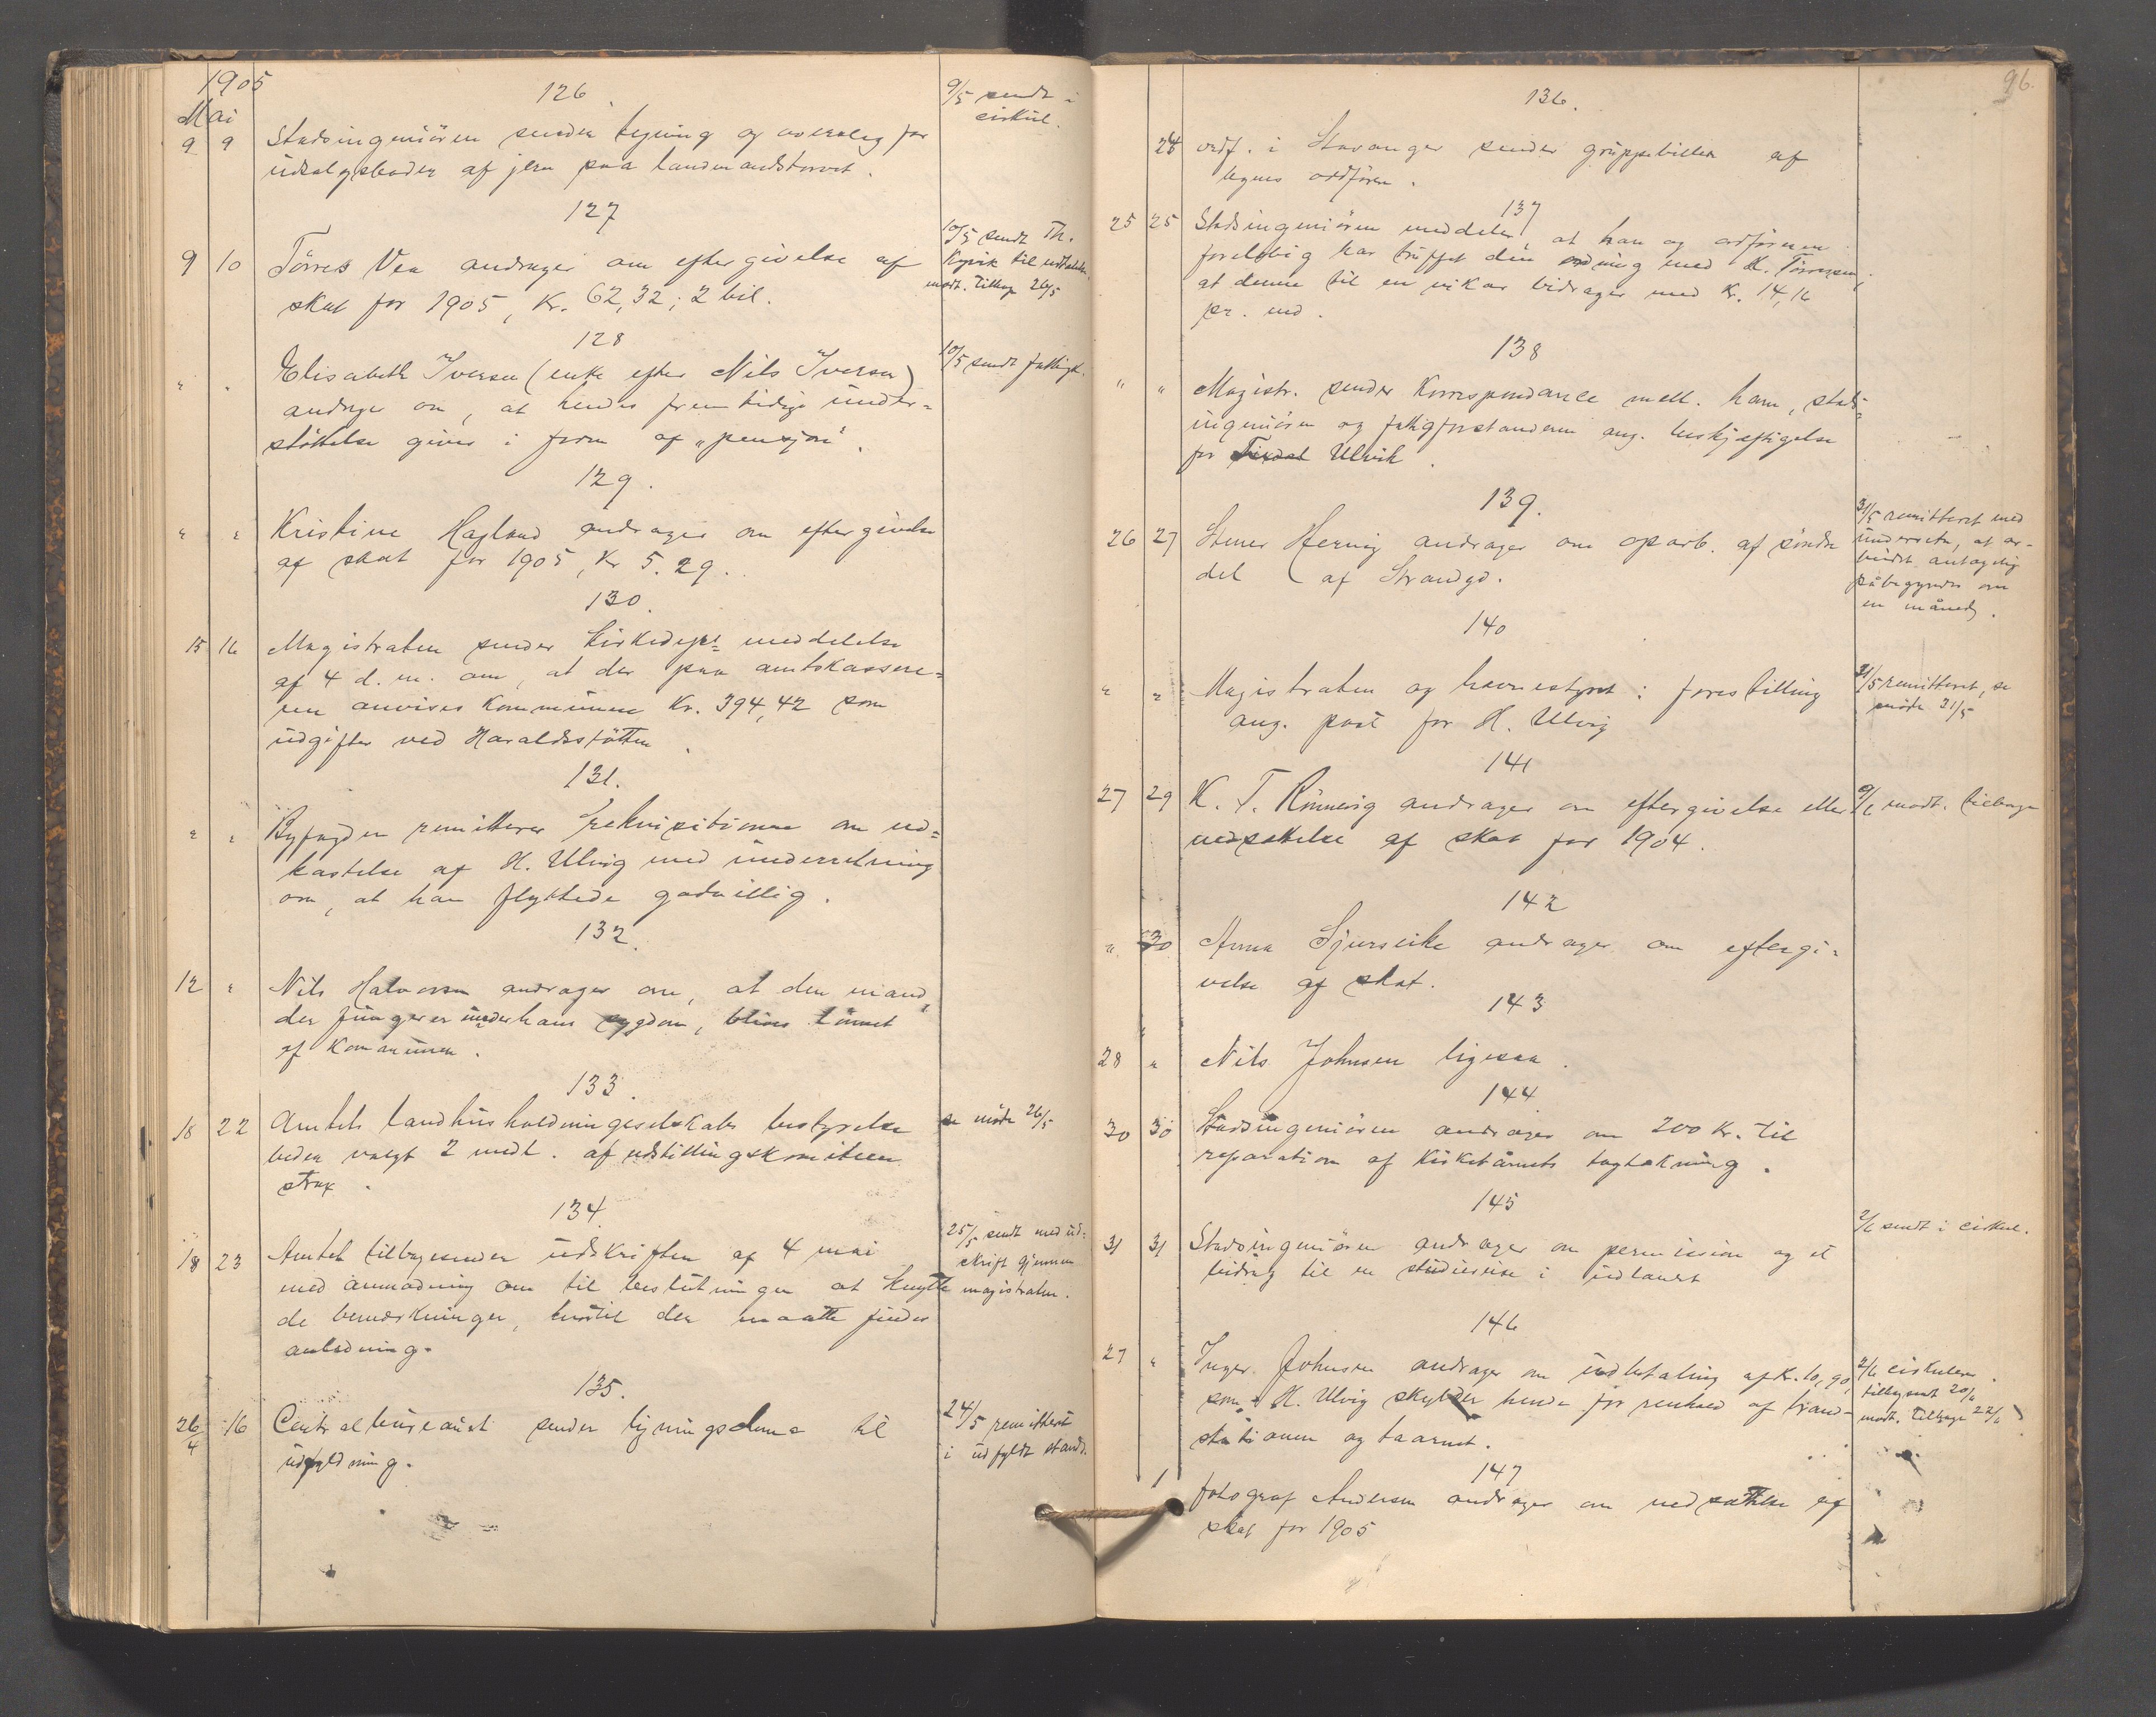 1905
Mai
126
9/5 sendt i
cirkul.
9 9 Stadsingeniören sender tegning og overslag for
udsalgsboder af jern paa Landmandstorvet.
127
9 10 Törres Vea andrager om eftergivelse af
skat for 1905, Kr. 62,32; 2 bil.
10/5 sendt Th.
Kyvik til udtalelse.
modt. tilbage 26/5
128
" " Elisabeth Iversen (enke efter Nils Iversen)
andrager om, at hendes fremtidige under-
stöttelse gives i form af „pensjon".
10/5 sendt fattigk.
129.
" " Kristine Hagland andrager om eftergivelse
af skat for 1905, Kr 5.29.
130.
15 16 Magistraten sender Kirkedept meddelelse
af 4 d. m. om, at der paa amtskassere-
ren anvises Kommunen Kr. 394,42 som
udgifter ved Haraldsstötten.
131.
" " Byfogden remitterer rekvisitionen om ud-
kastelse af H. Ulvig med underretning
om, at han flyttede godvillig.
132.
12 " Nils Halvorsen andrager om, at den mand,
der fungerer under hans sygdom, blives lönnet
af Kommunen.
133.
18 22 Amtets landhusholdningsselskabs bestyrelse
beder valgt 2 medl. af udstillingskomiteen
strax.
se möde 26/5
134.
18 23 Amtet tilbagesender udskriften af 4 mai
med anmodning om til beslutningen at knytte
de bemærkninger, hvortil der maatte findes
anledning.
25/5 sendt med ud-
skrift gjennem
magistraten.
135.
26/4 16 Centralbureauet sender ligningsskema til
udfyldning.
24/5 remitteret
i udfyldt stand.
96.
136.
24 ordf. i Stavanger sender gruppebilleder af
byens ordförere.
137
25 25 Stadsingeniören meddeler, at han og ordföreren
foreløbig har truffet den ordning med K. Törresen,
at denne til en vikar bidrager med Kr. 14,16
pr. md.
138
" " Magistr. sender Korrespondance mell. ham, stads-
ingeniören og fattigforstanderen ang. beskjeftigelse
for Ulvik.
139.
26 27 Stener Hervig andrager om oparb. af söndre
del af Strandgd.
31/5 remitteret med
underretn, at ar-
beidet antagelig
påbegyndes om
en måned.
140
" " Magistraten og havnestyret: forestilling
ang. post for H. Ulvig
31/5 remitteret, se
möde 31/5
141
27 29 K. T. Rönnevig andrager om eftergivelse eller
nedsættelse af skat for 1904.
9/6 modt. tilbage
142
" 30 Anna Sjurseike andrager om eftergi-
velse af skat.
143
28 " Nils Johnsen ligesaa.
144
30 30 Stadsingeniören andrager om 200 Kr. til
reparation af Kirketårnets tagtækning.
145
31 31 Stadsingeniören andrager om permission og et
bidrag til en studiereise i udlandet
2/6 sendt i cirkul.
146
27 " Inger Johnsen andrager om udbetaling af Kr. 10,90,
som H. Ulvig skylder hende for renhold af brand-
stationen og taarnet.
2/6 cirkulere.
tilbagesendt 20/6
modt. tilbage 22/6
147
1 fotograf Andersen andrager om nedsættelse af
skat for 1905